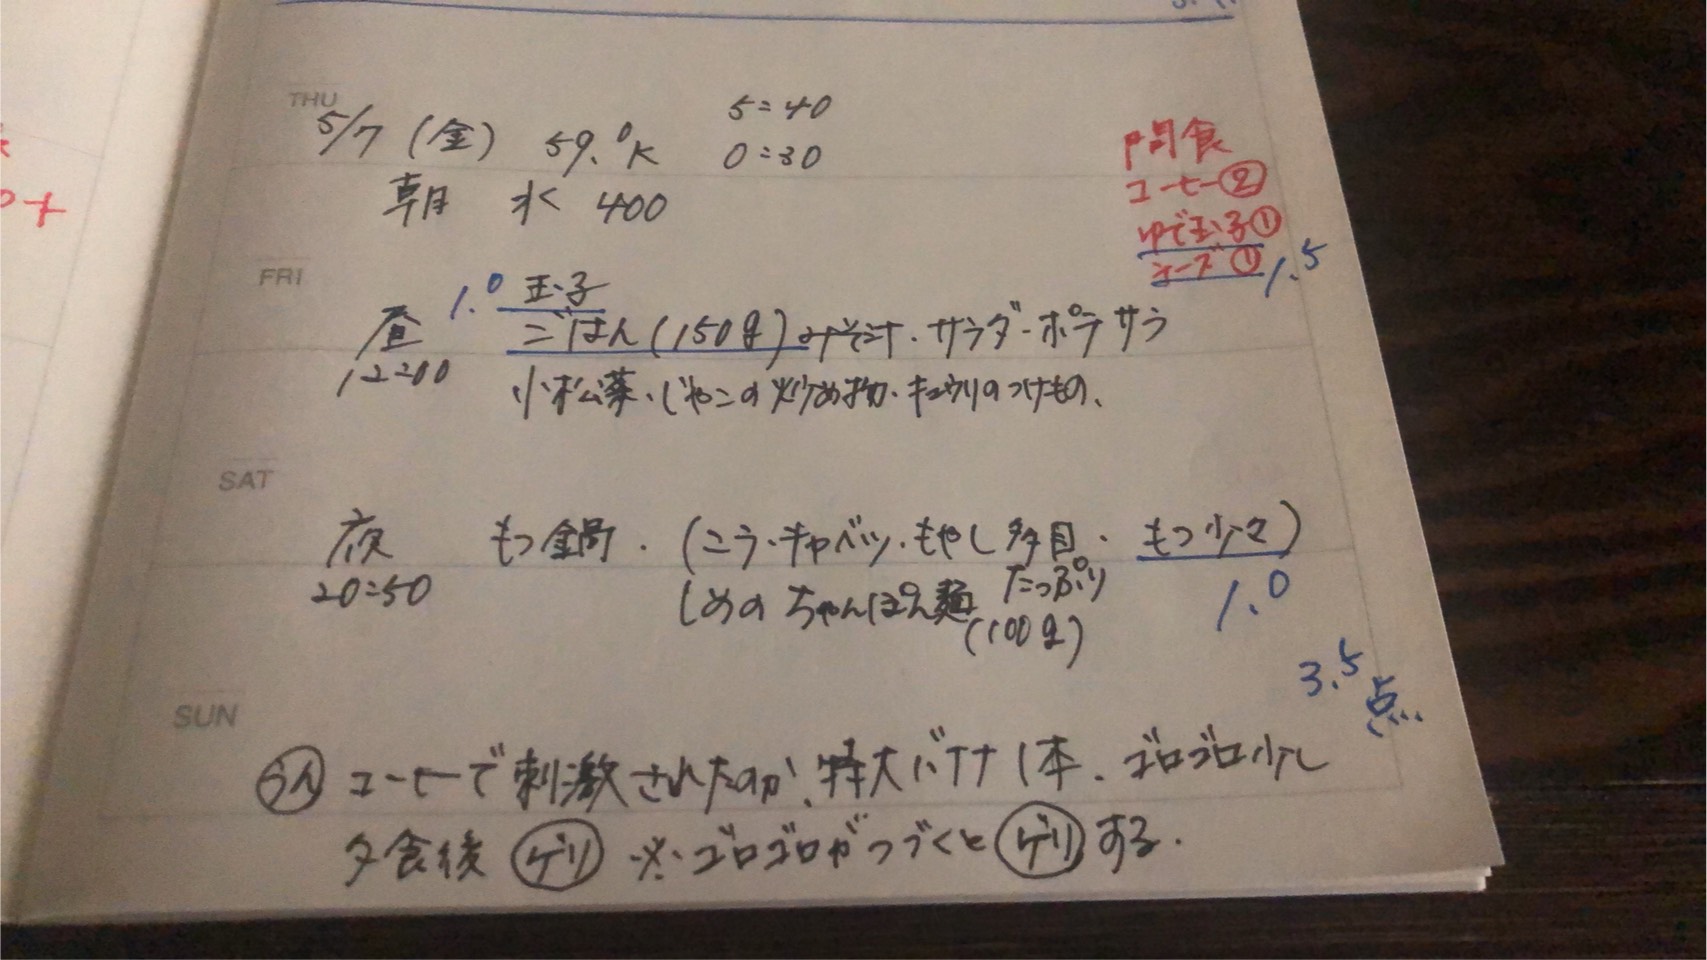 THU
5/7 (金) 59.0K 5=40
0=30
朝 水 400
間食
コーヒー②
ゆで玉子①
チーズ① 1.5
FRI
1.0 玉子
昼 ごはん(150g)みそ汁・サラダ・ポテサラ
12=00
小松菜・じゃこの炒め物・キュウリのつけもの、
SAT
夜 もつ鍋・(こう・キャベツ・もやし多目・もつ少々)
20=50 しめの ちゃんぽん麺 たっぷり
(100g) 1.0
3.5点
SUN
うん コーヒーで刺激されたのか、特大バナナ1本、ゴロゴロ少し
夕食後 ゲリ ※ゴロゴロがつづくと ゲリ する.